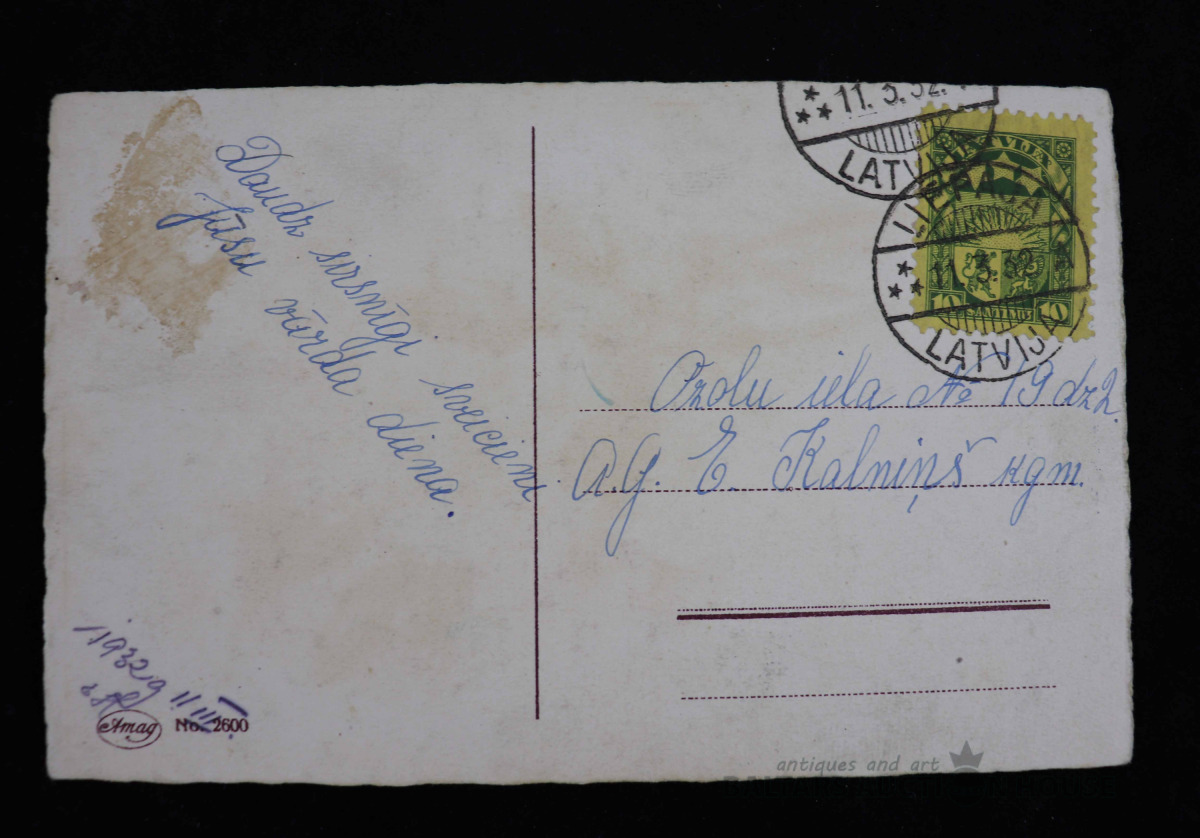 Daudz sirsnīgi sveicieni
Jūsu vārda diena.
11. 3. 32.
LATVIJA
LATVIJAS
LIEPAJA
11. 3. 32
10 SANTIMS 10
LATVIJA
Ozolu iela № 19 dz 2
A.G. E. Kalniņš kgm.
1932 g 11 III
Amag No. 2600
antiques and art
HOUSE